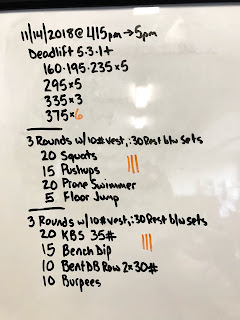 11/14/2018 @ 415pm → 5pm
Deadlift 5.3.1+
160.195.235x5
295x5
335x3
375x6
3 Rounds w/10# vest, :30 Rest b/w sets
20 Squats
15 Pushups |||
20 Prone Swimmer
5 Floor Jump
3 Rounds w/10# vest, :30 Rest b/w sets
20 KBS 35# |||
15 Bench Dip
10 Bent DB Row 2x30#
10 Burpees